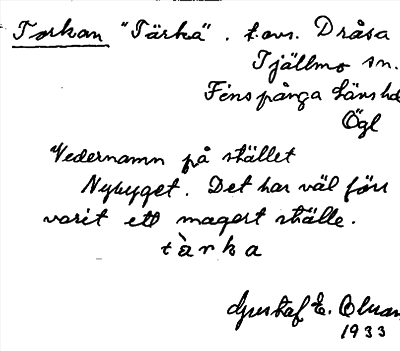 Torkan "Tärka". t.ovs. Dråsa
Tjällmo sn.
Finspånga länshd
Ögl
Vedernamn på stället
Nybyget. Det har väl förr
varit ett magert ställe.
tàrka
Gustaf E. Olsson
1933